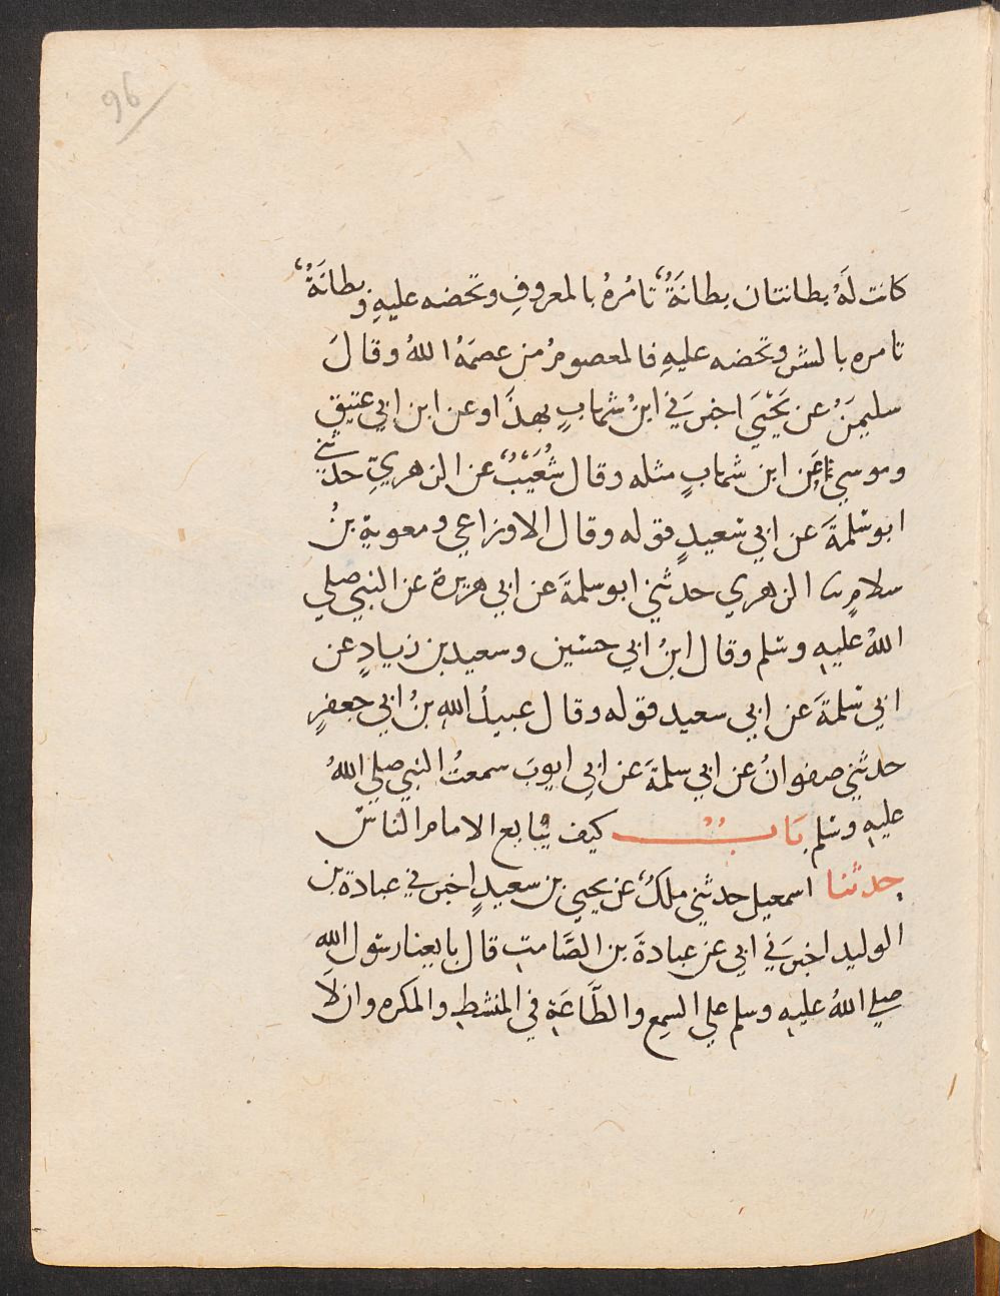 96
كانت لَهُ بطانتان بطانَةٌ تامُرهُ بالمعروفِ وتحضه عليهِ وبطانَةٌ
تامره بالشر وتحضه عليهِ فالمعصومُ من عصَمَهُ اللهُ وقالَ
سليمنُ عن يَحْيَي اخبرَني ابنُ شهابٍ بهذَا وعن ابن ابي عتيقٍ
وموسي عَن ابن شهابٍ مثله وقال شُعَيبٌ عن الزهريِّ حدثني
ابو سلمةَ عن ابي سعيدٍ قوله وقال الاوزاعي ومعوية بنُ
سلامٍ الزهري حدثني ابو سلمةَ عن ابي هريرة عن النبي صلي
اللهُ عليهِ وسلم وقال ابنُ ابي حسين وسعيد بن زيادٍ عن
ابي سلمةَ عن ابي سعيد قوله وقال عبيدُ اللهِ بنُ ابي جعفرٍ
حدثني صفوانُ عن ابي سلمةَ عن ابي ايوبَ سمعتُ النبي صلي اللهُ
عليهِ وسلم بَابٌ كيف يُبايع الامام الناسَ
حدثنا اسمعيل حدثني ملكٌ عن يحيي بن سعيدٍ اخبرني عبادة بن
الوليد اخبرَني ابي عن عبادةَ بن الصَّامتِ قال بايعنا رسول الله
صلي اللهُ عليهِ وسلم علي السمع والطَّاعَةِ في المنشطِ والمكره وان لَا